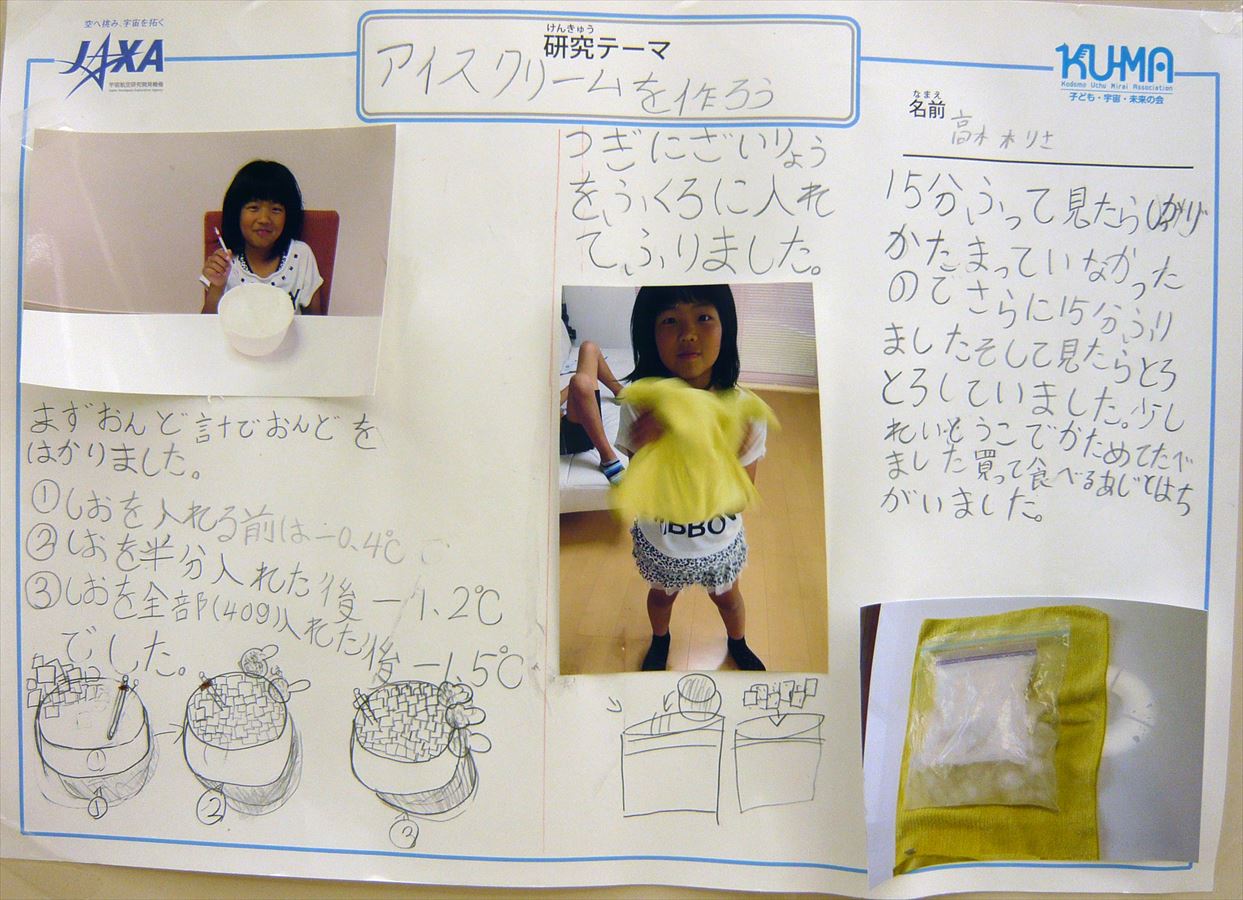 空へ挑み、宇宙を拓く
JAXA
宇宙航空研究開発機構
Japan Aerospace Exploration Agency
けんきゅう
研究テーマ
アイスクリームを作ろう
KU-MA
Kodomo Uchu Mirai Association
子ども・宇宙・未来の会
なまえ
名前
高木 りさ
まずおんど計でおんどを
はかりました。
①しおを入れる前は-0.4℃
②しおを半分入れた後-1.2℃
③しおを全部(40g)入れた後-1.5℃
でした。
①
②
③
つぎにざいりょう
をふくろに入れ
てふりました。
15分ふって見たらしっかり
かたまっていなかった
のでさらに15分ふり
ましたそして見たらとろ
とろしていました。少し
れいとうこでかためてたべ
ました買って食べるあじとはち
がいました。